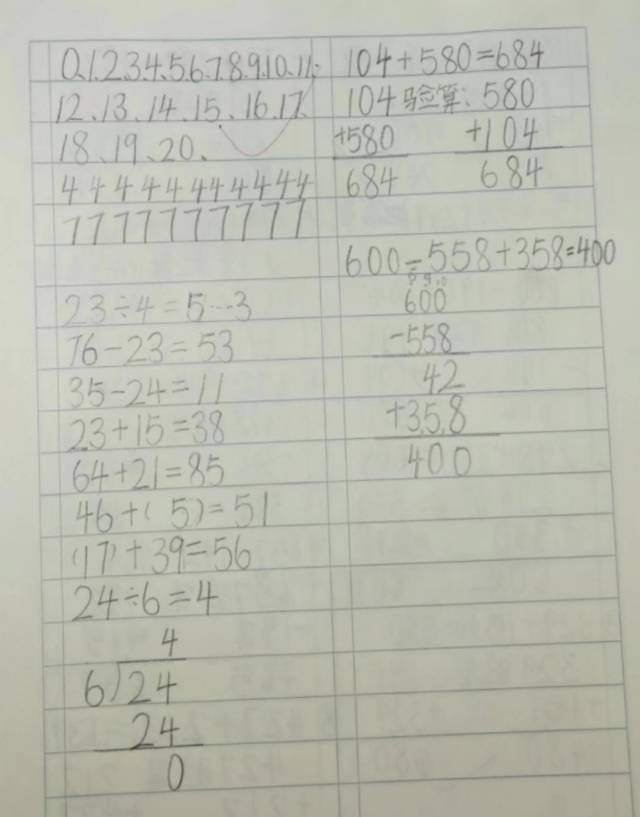 0.1.2.3.4.5.6.7.8.9.10.11.
12、13、14、15、16、17、
18、19、20、
4 4 4 4 4 4 4 4 4 4 4
7 7 7 7 7 7 7 7 7 7
23÷4=5…3
76-23=53
35-24=11
23+15=38
64+21=85
46+(5)=51
(17)+39=56
24÷6=4
4
6)24
24
0
104+580=684
104 验算: 580
+580 +104
684 684
600-558+358=400
600
-558
42
+358
400